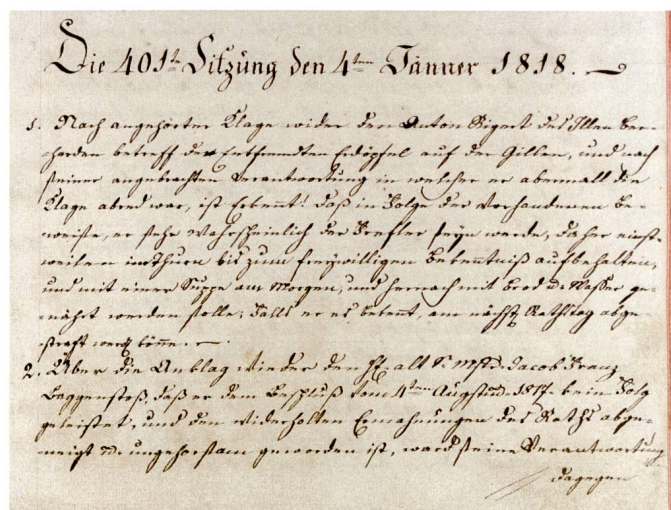 Die 401te Sitzung den 4ten Jänner 1818.
1. Nach angehörter Klage wider den Anton Rigert des Illen Ger-
harden betreff der Entfremdten Erdöpfel auf der Gillen, und nach
seiner angebrachten Verantwortung in welcher er abermall die
Klage abred war, ist erkennt! daß in Folge der vorhandenen Be-
weise, er sehr Wahrscheinlich der Frefler seyn werde, daher einst-
weilen im Thurn bis zum freywilligen Bekenntniß aufbehalten,
und mit einer Suppe am Morgen, und hernach mit Brod u: Waßer ge-
nährt werden solle; Falls er es bekent, am nächst Rathstag abge-
straft werd könne. —.
2. Über die Anklag wieder den H: alt Jacob Franz
Baggenstoß, daß er dem Beschluß vom 4ten Augstm 1817 kein Folg
geleistet, und den widerholten Ermahnungen des Raths abge-
neigt und ungehorsam geworden ist, ward seine Verantwortung
dagegen